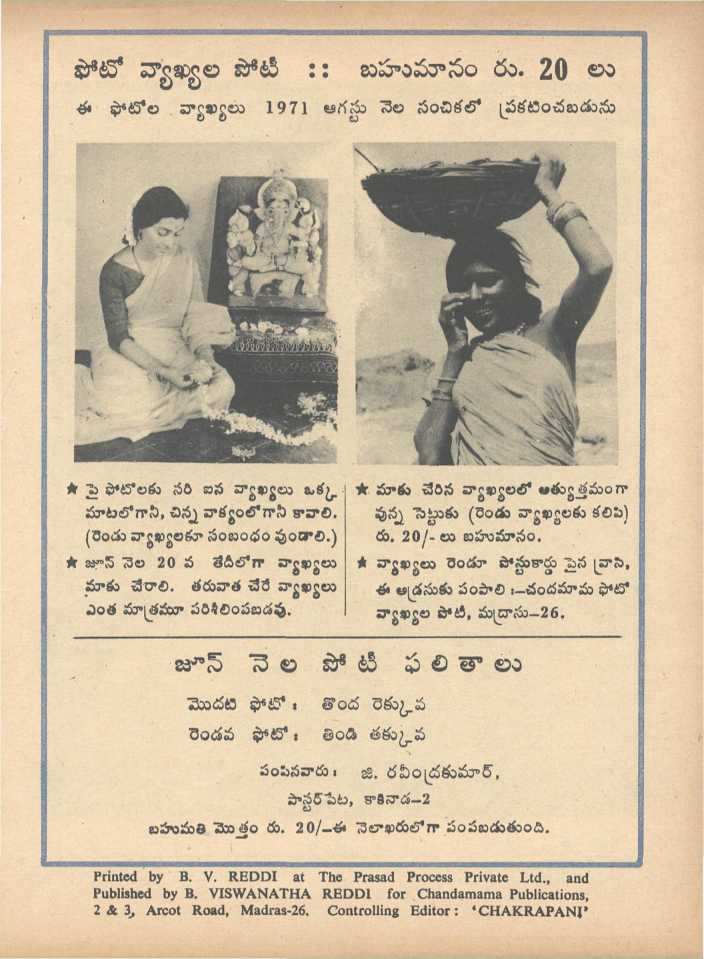 ఫోటో వ్యాఖ్యల పోటీ :: బహుమానం రు. 20 లు
ఈ ఫోటోల వ్యాఖ్యలు 1971 ఆగస్టు నెల సంచికలో ప్రకటించబడును
★ పై ఫోటోలకు సరి ఐన వ్యాఖ్యలు ఒక్క
మాటలోగాని, చిన్న వాక్యంలోగాని కావాలి.
(రెండు వ్యాఖ్యలకూ సంబంధం వుండాలి.)
★ జూన్ నెల 20 వ తేదీలోగా వ్యాఖ్యలు
మాకు చేరాలి. తరువాత చేరే వ్యాఖ్యలు
ఎంత మాత్రమూ పరిశీలింపబడవు.
★ మాకు చేరిన వ్యాఖ్యలలో అత్యుత్తమంగా
వున్న సెట్టుకు (రెండు వ్యాఖ్యలకు కలిపి)
రు. 20/- లు బహుమానం.
★ వ్యాఖ్యలు రెండూ పోస్టుకార్డు పైన వ్రాసి,
ఈ అడ్రసుకు పంపాలి :—చందమామ ఫోటో
వ్యాఖ్యల పోటీ, మద్రాసు-26.
జూన్ నెల పోటీ ఫలితాలు
మొదటి ఫోటో : తొంద రెక్కువ
రెండవ ఫోటో : తిండి తక్కువ
పంపినవారు : జి. రవీంద్రకుమార్,
పాస్టర్ పేట, కాకినాడ-2
బహుమతి మొత్తం రు. 20/-ఈ నెలాఖరులోగా పంపబడుతుంది.
Printed by B. V. REDDI at The Prasad Process Private Ltd., and
Published by B. VISWANATHA REDDI for Chandamama Publications,
2 & 3, Arcot Road, Madras-26. Controlling Editor : 'CHAKRAPANI'